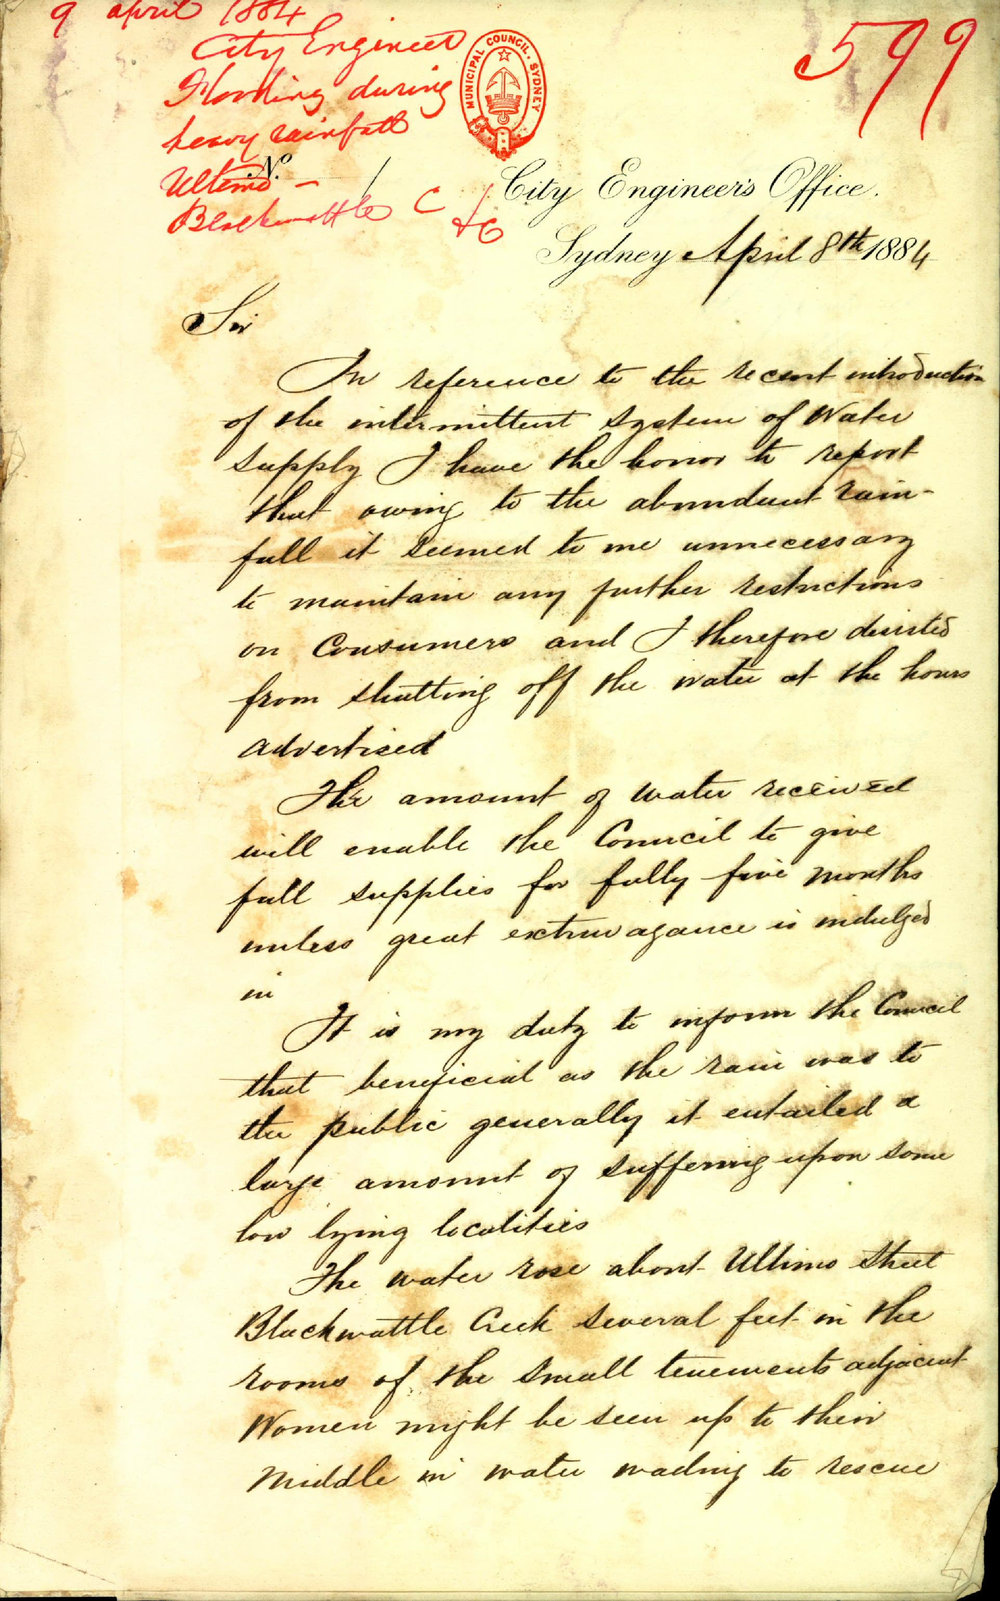 9 april 1884
City Engineer
Flooding during
heavy rainfall
Ultimo -
Blackwattle C
599
MUNICIPAL COUNCIL. SYDNEY
No.
City Engineer's Office.
Sydney April 8th 1884
Sir
In reference to the recent introduction
of the intermittent system of Water
supply I have the honor to report
that owing to the abundant rain-
fall it seemed to me unnecessary
to maintain any further restrictions
on Consumers and I therefore desisted
from shutting off the water at the hours
advertised
The amount of water received
will enable the Council to give
full supplies for fully five months
unless great extravagance is indulged
in
It is my duty to inform the Council
that beneficial as the rain was to
the public generally it entailed a
large amount of suffering upon some
low lying localities
The water rose about Ultimo Street
Blackwattle Creek several feet in the
rooms of the small tenements adjacent
Women might be seen up to their
middle in water wading to rescue